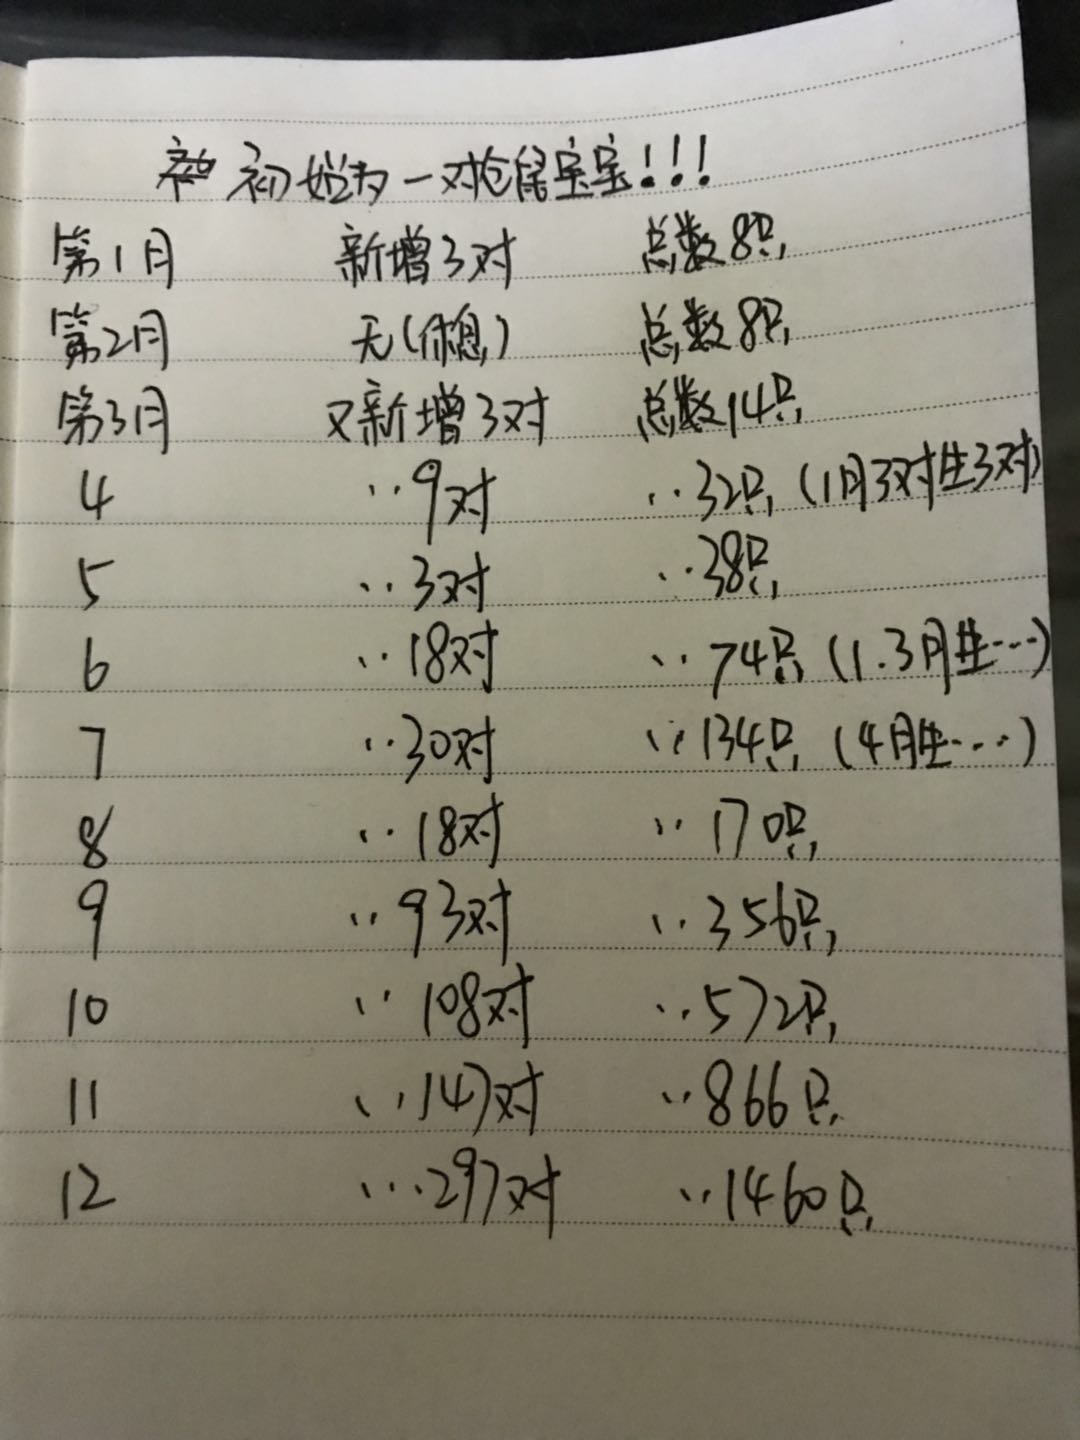 初始为一对仓鼠宝宝!!!
第1月 新增3对 总数8只
第2月 无(休息) 总数8只
第3月 又新增3对 总数14只
4 ..9对 ..32只(1月3对生3对)
5 ..3对 ..38只
6 ..18对 ..74只(1.3月生...)
7 ..30对 ..134只(4月生....)
8 ..18对 ..170只
9 ..93对 ..356只
10 ..108对 ..572只
11 ..147对 ..866只
12 ...297对 ..1460只